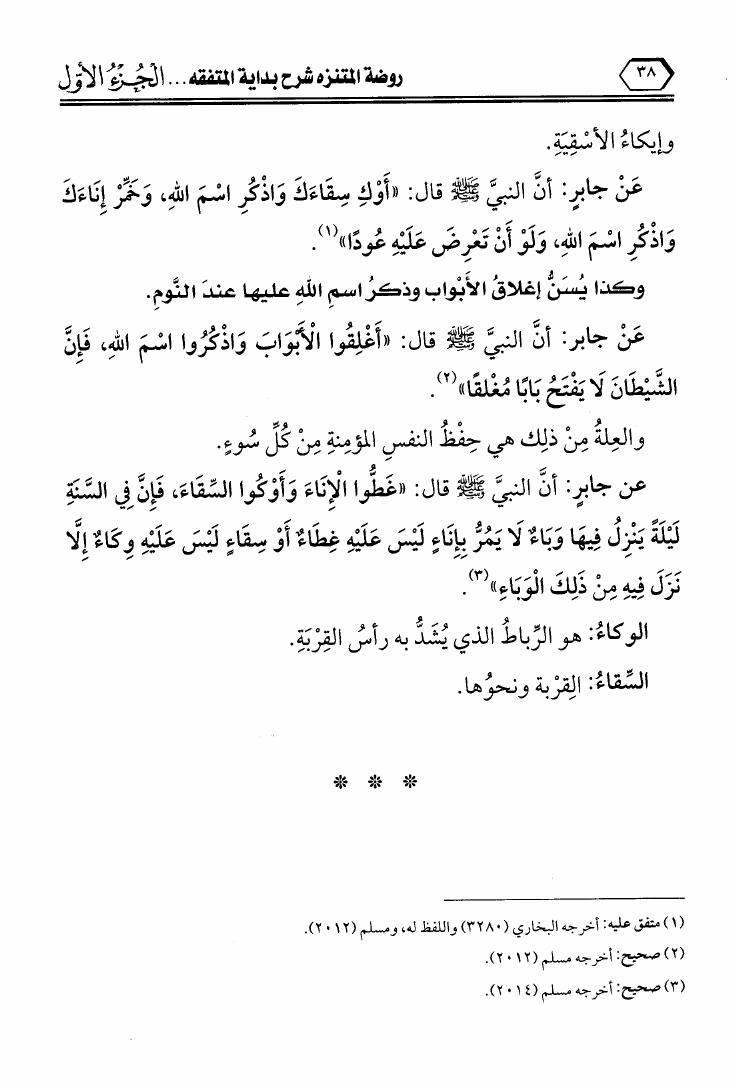 ٣٨
روضة المتنزه شرح بداية المتفقه ... الْجُزْءُ الأَوَّل
وإيكاءُ الأَسْقِيَةِ.
عَنْ جابرٍ: أنَّ النبيَّ ﷺ قال: «أَوْكِ سِقَاءَكَ وَاذْكُرِ اسْمَ اللهِ، وَخَمِّرْ إِنَاءَكَ
وَاذْكُرِ اسْمَ اللهِ، وَلَوْ أَنْ تَعْرِضَ عَلَيْهِ عُودًا»(١).
وكذا يُسَنُّ إغلاقُ الأَبْوابِ وذكرُ اسمِ اللهِ عليها عندَ النَّومِ.
عَنْ جابر: أنَّ النبيَّ ﷺ قال: «أَغْلِقُوا الْأَبْوَابَ وَاذْكُرُوا اسْمَ اللهِ، فَإِنَّ
الشَّيْطَانَ لَا يَفْتَحُ بَابًا مُغْلَقًا»(٢).
والعِلةُ مِنْ ذلك هي حِفْظُ النفسِ المؤمنةِ مِنْ كُلِّ سُوءٍ.
عن جابرٍ: أنَّ النبيَّ ﷺ قال: «غَطُّوا الْإِنَاءَ وَأَوْكُوا السِّقَاءَ، فَإِنَّ فِي السَّنَةِ
لَيْلَةً يَنْزِلُ فِيهَا وَبَاءٌ لَا يَمُرُّ بِإِنَاءٍ لَيْسَ عَلَيْهِ غِطَاءٌ أَوْ سِقَاءٍ لَيْسَ عَلَيْهِ وِكَاءٌ إِلَّا
نَزَلَ فِيهِ مِنْ ذَلِكَ الْوَبَاءِ»(٣).
الوكاءُ: هو الرِّباطُ الذي يُشَدُّ به رأسُ القِرْبَةِ.
السِّقاءُ: القِرْبة ونحوُها.
* * *
(١) متفق عليه: أخرجه البخاري (٣٢٨٠) واللفظ له، ومسلم (٢٠١٢).
(٢) صحيح: أخرجه مسلم (٢٠١٢).
(٣) صحيح: أخرجه مسلم (٢٠١٤).